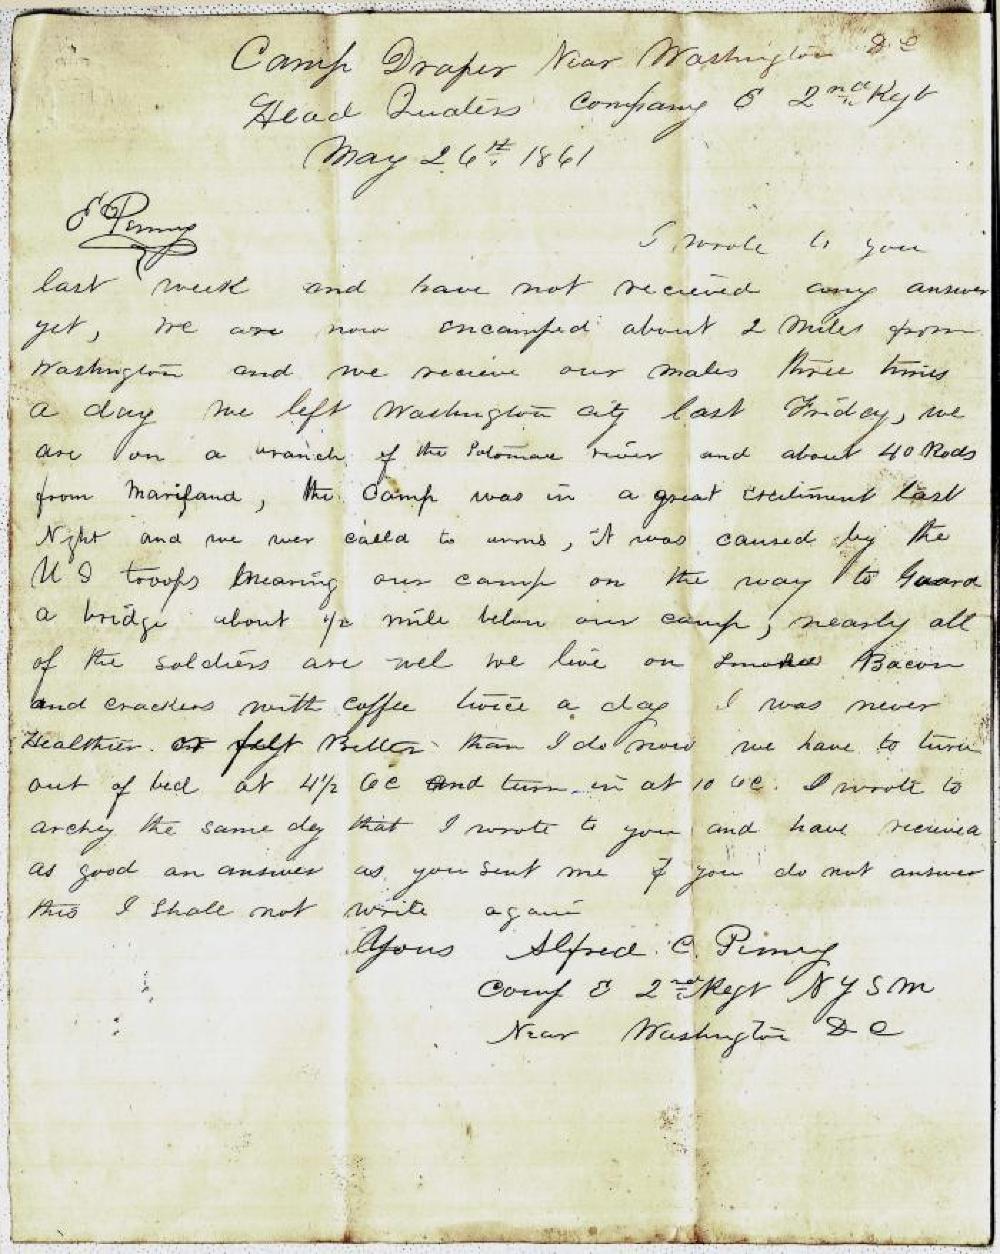 Camp Draper Near Washington D C
Head Quaters Company E 2nd Regt
May 26th 1861
E Pinny
I wrote to you
last week and have not recieved any answer
yet, we are now encamped about 2 Miles from
Washington and we recieve our males three times
a day we left Washington city last Friday, we
are on a branch of the Potomac river and about 40 Rods
from Mariland, the Camp was in a great excitiment last
Night and we wer called to arms, it was caused by the
U S troops nearing our camp on the way to Guard
a bridge about 1/2 mile below our camp, nearly all
of the soldiers are wel we live on smoked Bacon
and crackers with coffee twice a day I was never
Healthier or felt Better than I do now we have to turn
out of bed at 4 1/2 oC and turn in at 10 oC. I wrote to
archey the same day that I wrote to you and have recieved
as good an answer as you sent me if you do not answer
this I shall not write again
Yours Alfred C. Pinny
Comp E 2nd Regt N Y S M
Near Washington D C